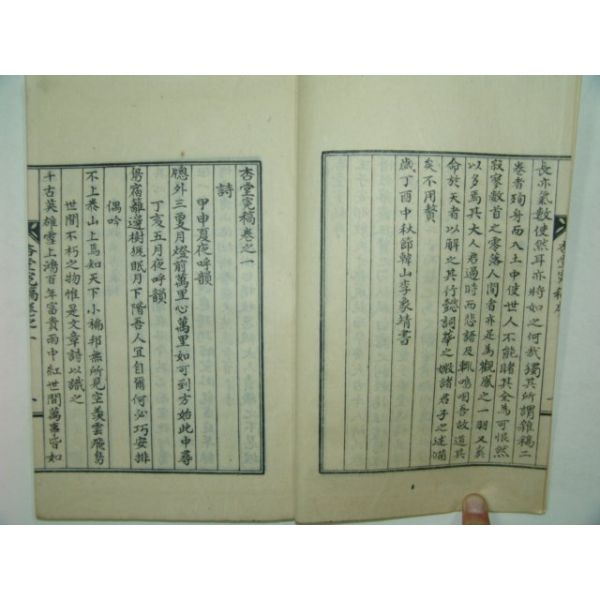 長亦氣數使然耳亦將如之何哉獨其所謂雜稿二
卷者殉哥而入土中使世人不能睹其全為可恨然
寂寥數首之零落人間者亦足為觀感之一羽又奚
以多為其大人君過時而悲語及輒嗚咽吾故道其
命於天者以解之其行懿詞華之嫩諸君子之述備
矣不用贅
歲丁酉中秋節韓山李象靖書
杏堂寃稿卷之一
詩
甲申夏夜呼韻
牕外三更月燈前萬里心萬里如可到方始此中尋
丁亥五月夜呼韻
鳥宿籬邊樹猧眠月下陽吾人宜自爾何必巧安排
偶吟
不上泰山上焉知天下小橘邦無所見空羨雲飛鳥
世間不朽之物惟是文章詩以識之
千古英雄雪上鴻百年富貴雨中紅世間萬事皆如
杏堂寃稿卷之一